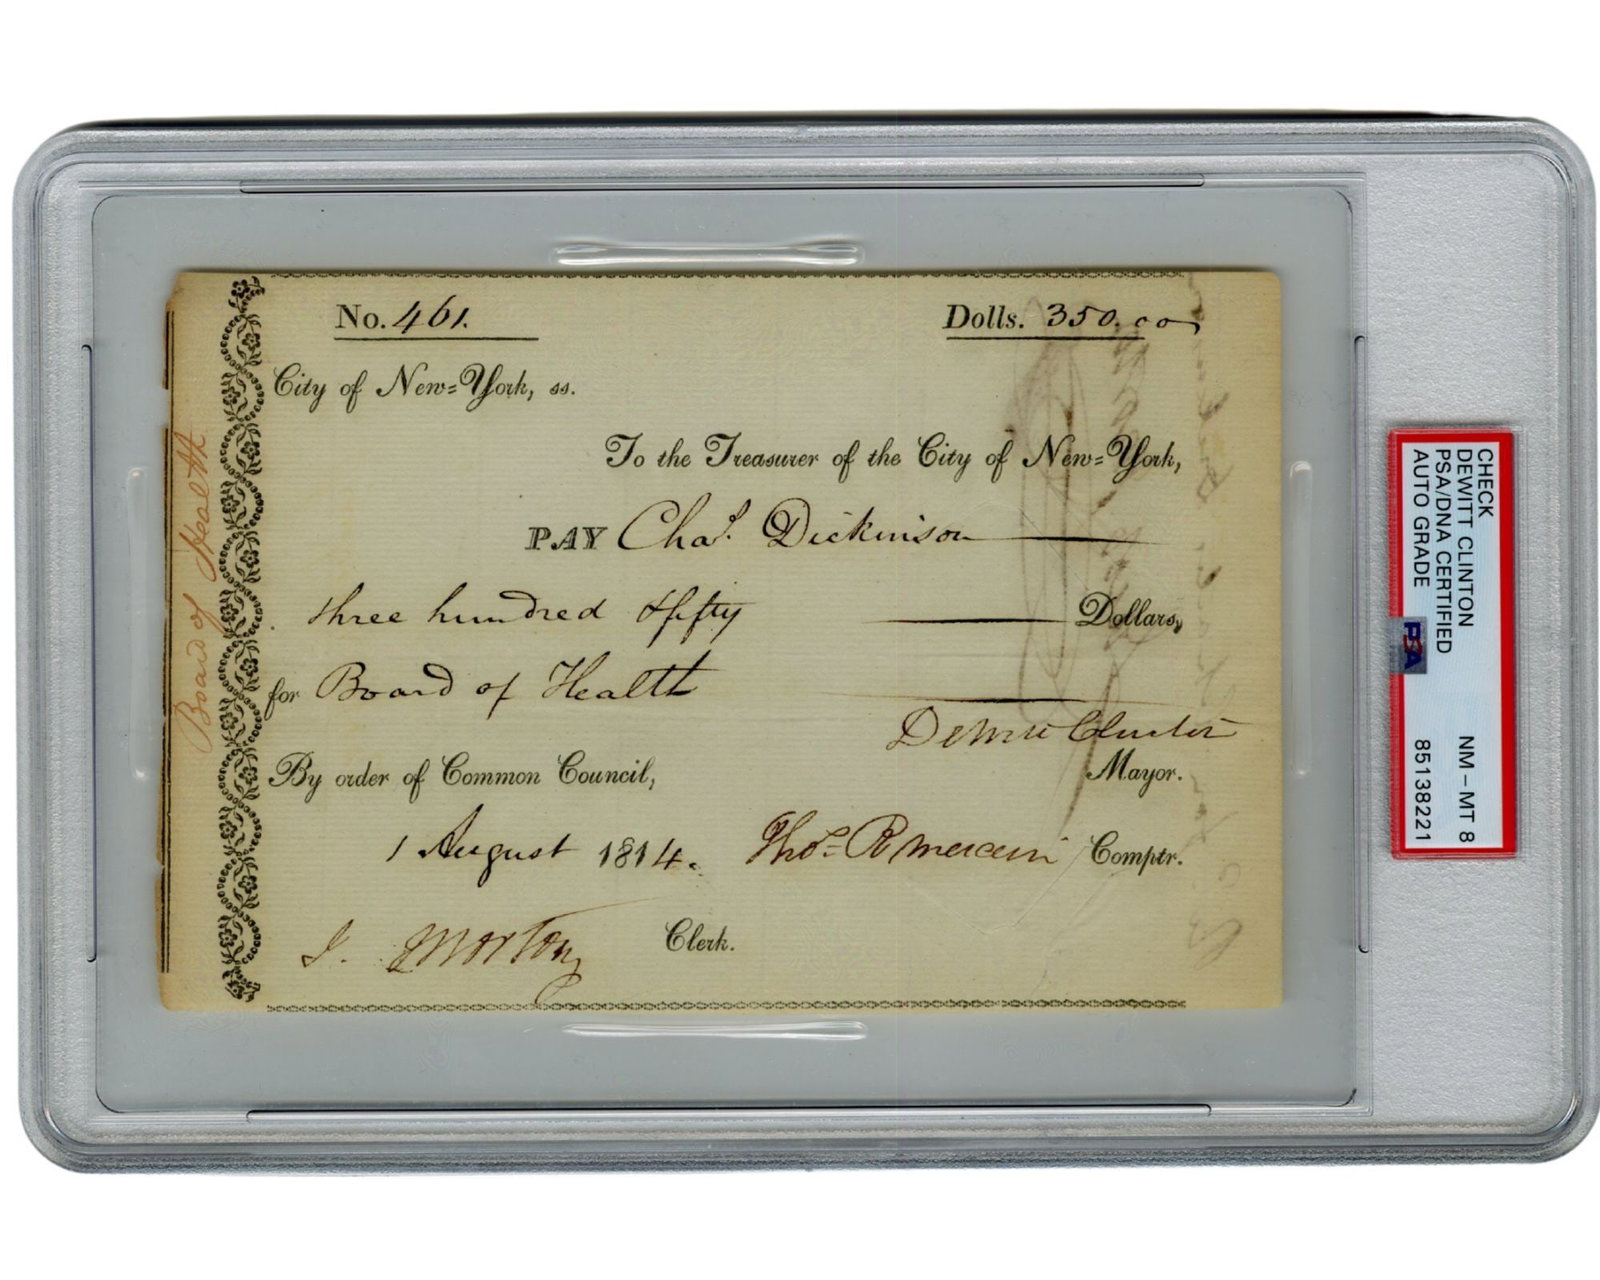 No. 461.
Dolls. 350.00
City of New=York, ss.
To the Treasurer of the City of New=York,
PAY Chas. Dickinson
three hundred & fifty Dollars,
for Board of Health
DeWitt Clinton
By order of Common Council, Mayor.
1 August 1814. Thos. R Mercein Comptr.
J. Morton Clerk.
Board of Health
CHECK
DEWITT CLINTON NM – MT 8
PSA/DNA CERTIFIED
AUTO GRADE 85138221
PSA